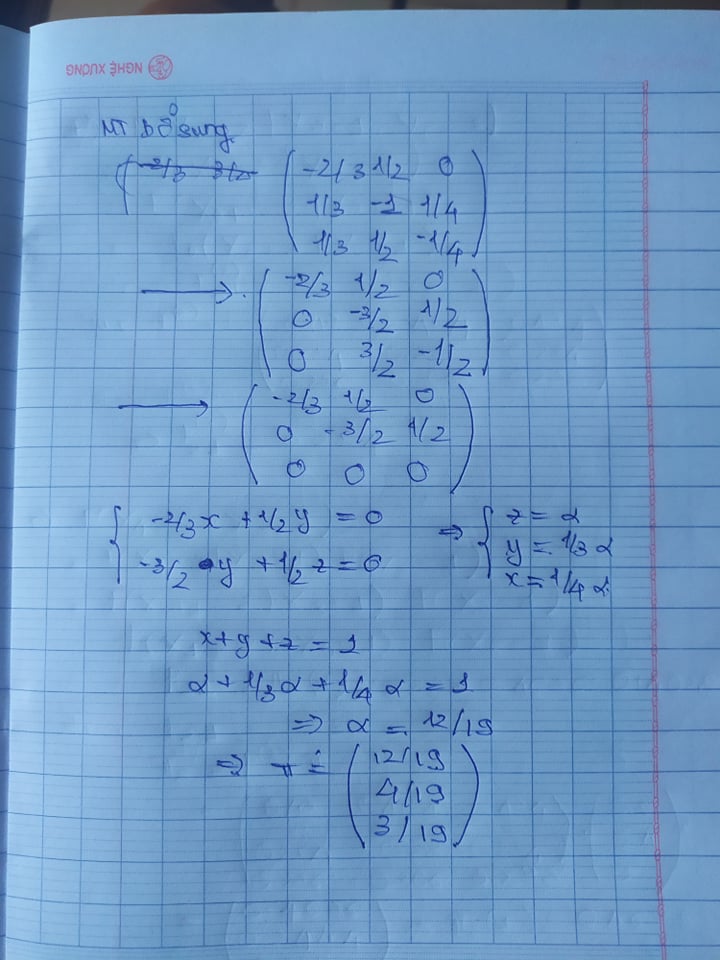 NGHỆ XƯƠNG
MT bổ sung
-2/3 3/2
-2/3 1/2 0
1/3 -1 1/4
1/3 1/2 -1/4
→ -2/3 1/2 0
0 -3/2 1/2
0 3/2 -1/2
→ -2/3 1/2 0
0 -3/2 1/2
0 0 0
{ -2/3x + 1/2y = 0 ⇒ { z = α
-3/2 y + 1/2 z = 0 y = 1/3 α
x = 1/4 α
x + y + z = 1
α + 1/3α + 1/4 α = 1
⇒ α = 12/19
⇒ π = (12/19
4/19
3/19)